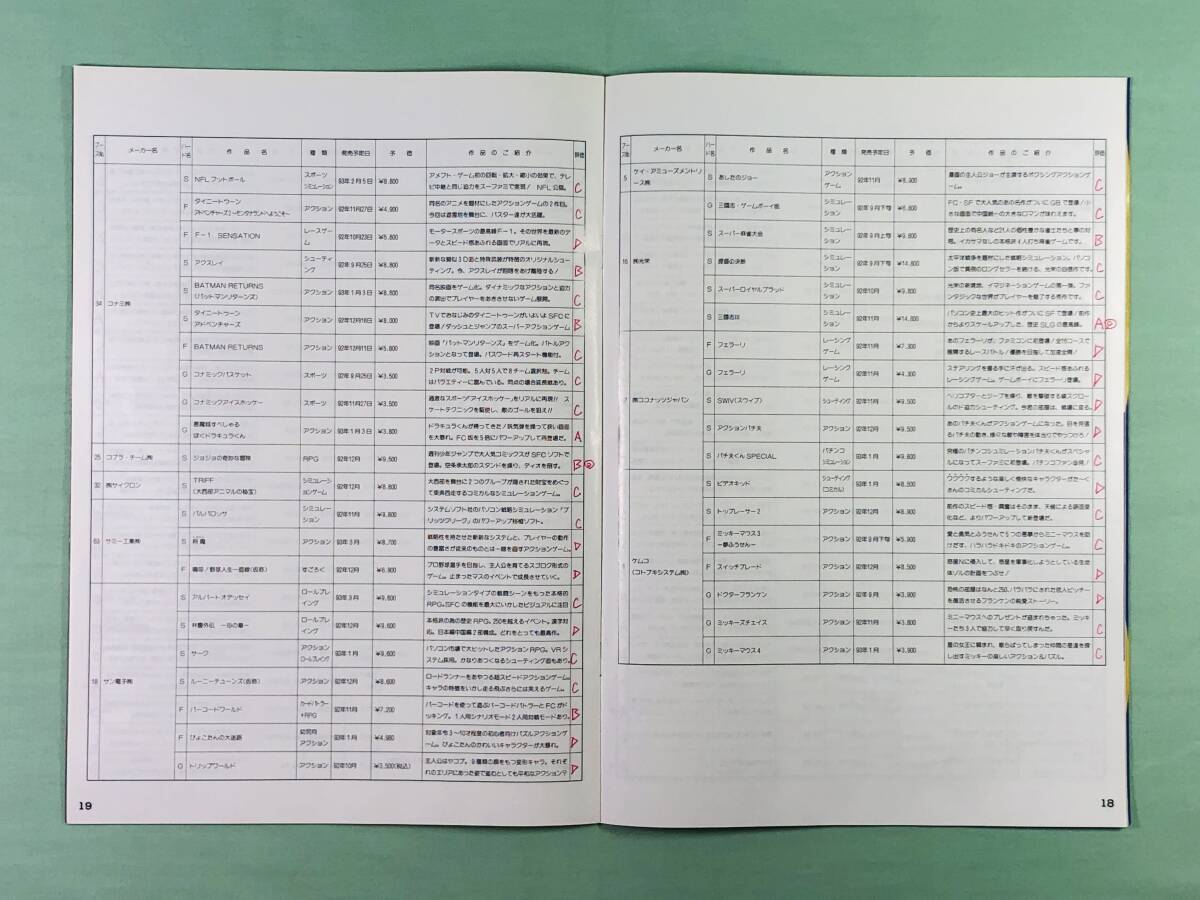 ブース№ メーカー名 ハード名 作品名 種類 発売予定日 予価 作品のご紹介 評価
34 コナミ㈱
S NFLフットボール スポーツシミュレーション 93年2月5日 ¥8,800 アメフト・ゲーム初の回転・拡大・縮小の効果で、テレ
ビ中継と同じ迫力をスーファミで実現! NFL公認。 C
F タイニートゥーン アクション 92年11月27日 ¥4,900 同名のアニメを題材にしたアクションゲームの2作目。
今回は遊園地を舞台に、バスター達が大活躍。 C
F F-1 SENSATION レースゲーム 92年10月23日 ¥5,800 モータースポーツの最高峰F-1。その世界を最新のデ
ータとスピード感あふれる画面でリアルに再現。 D
S アクスレイ シューティング 92年9月25日 ¥8,800
ューティング。今、アクスレイが眠りをあけ離陸する! B
S BATMAN RETURNS
(バットマンリターンズ) アクション 93年1月3日 ¥8,800 同名映画をゲーム化。ダイナミックなアクションと迫力
の演出でプレイヤーをあきさせないゲーム展開。 C
S タイニートゥーン
アドベンチャーズ アクション 92年12月18日 ¥8,000 TVでおなじみのタイニートゥーンがいよいよSFCに
登場!ダッシュとジャンプのスーパーアクションゲーム B
F BATMAN RETURNS アクション 92年12月11日 ¥5,800 映画「バットマンリターンズ」をゲーム化。バトルアク
ションとなって登場。パスワード再スタート機能付。 C
G コナミックバスケット スポーツ 92年9月25日 ¥3,500 2P対戦が可能。5人対5人で8チーム選択制。チーム
はバラエティーに富んでいる。同点の場合延長戦あり。 C
G コナミックアイスホッケー スポーツ 92年11月27日 ¥3,500 過激なスポーツ"アイスホッケー"をリアルに再現!!ス
ケートテクニックを駆使し、敵のゴールを狙え!! C
G 悪魔城すぺしゃる
ぼくドラキュラくん アクション 93年1月3日 ¥3,800 ドラキュラくんが帰ってきた!妖気弾を操って狭い画面
を大暴れ。FC版を5倍にパワーアップして再登場だ。 A
25 コブラ・チーム㈱ S ジョジョの奇妙な冒険 RPG 92年12月 ¥9,500 週刊少年ジャンプで大人気コミックスがSFCソフトで
登場。空条承太郎のスタンドを操り、ディオを倒す。 B◎
32 ㈱サイクロン S TRIFF
(大西部アニマルの秘宝) シミュレーションゲーム 92年12月 ¥8,800 大西部を舞台に2つのグループが隠された財宝をめぐっ
て東奔西走するコミカルなシミュレーションゲーム。 C
63 サミー工業㈱
S バルバロッサ シミュレーション 92年11月 ¥9,800 システムソフト社のパソコン戦略シミュレーション「ブ
リッツクリーク」のパワーアップ移植ソフト。 C
アクション 93年3月 ¥8,700 戦略性を持たせた斬新なシステムと、プレイヤーの動作
の豊富さが従来のものとは一線を画すアクションゲーム。 D
F 鳴呼!野球人生一直線(仮称) すごろく 92年12月 ¥6,800 プロ野球選手を目指し、主人公を育てるスゴロク形式の
ゲーム。止まったマスのイベントで成長させていく。 D
18 サン電子㈱
S アルバートオデッセイ ロールプレイング 93年3月 ¥9,600 シミュレーションタイプの戦闘シーンをもった本格的
RPG。SFCの機能を最大にいかしたビジュアルに注目 C
S 弁慶外伝 ロールプレイング 92年12月 ¥9,600 本格派の和の歴史RPG。250を越えるイベント。漢字対
応。日本編中国編2部構成。どれをとっても最高作。 D
S サーク アクションロールプレイング 93年1月 ¥9,600 パソコン市場で大ヒットしたアクションRPG。VRシ
ステム採用。かなりあつくなるシューティング面もあり。 C
S ルーニーチューンズ(仮称) アクション 92年12月 ¥8,600 ロードランナーをあやつる超スピードアクションゲーム。
キャラの特徴をいかし走る飛ぶさらには笑えるゲーム。 C
F バーコードワールド カードバトラー+RPG 92年11月 ¥7,200 バーコードを使って遊ぶバーコードバトラーとFCがド
ッキング。1人用シナリオモード2人用対戦モードあり。 B
F ぴょこたんの大迷路 幼児向アクション 93年1月 ¥4,980 対象年令3~10才程度の初心者向けパズルアクションゲ
ーム。ぴょこたんのかわいいキャラクターが大暴れ。 D
G トリップワールド アクション 92年10月 ¥3,500(税込) 主人公はヤコプ。9種類の顔をもつ変形キャラ。それぞ
れのエリアにあった姿で進むとしても平和なアクションで D
19
ブース№ メーカー名 ハード名 作品名 種類 発売予定日 予価 作品のご紹介 評価
5 ケイ・アミューズメントリース㈱ S あしたのジョー アクションゲーム 92年11月 ¥8,900 漫画の主人公ジョーが主演するボクシングアクションゲ
ーム。 C
16 ㈱光栄
G 三國志・ゲームボーイ版 シミュレーション 92年9月下旬 ¥6,800 FC・SFで大人気のあの名作がついにGBで登場!小
さな画面で中国統一の大きなロマンが味わえます。 C
S スーパー麻雀大会 シミュレーション 92年9月上旬 ¥9,800 歴史上の有名人など21人の個性豊かな雀士たちと夢の対
局。イカサマなしの本格派4人打ち麻雀ゲームです。 B
S 提督の決断 シミュレーション 92年9月下旬 ¥14,800 太平洋戦争を題材にした戦略シミュレーション。パソコ
ン版で異例のロングセラーを続ける、光栄の自信作です。 C
S スーパーロイヤルブラッド シミュレーション 92年10月 ¥9,800 光栄の新境地、イマジネーションゲームの第一弾。ファ
ンタジックな世界がプレイヤーを魅了する意欲作です。 C
S 三國志III シミュレーション 92年11月 ¥14,800 パソコン史上最大のヒット作がついにSFで登場!前作
からよりスケールアップした、歴史SLGの最高峰。 A◎
7 ㈱ココナッツジャパン
F フェラーリ レーシングゲーム 92年11月 ¥7,300 あのフェラーリが、ファミコンに初登場!全16コースで
展開するレースバトル!優勝を目指して加速全開! D
G フェラーリ レーシングゲーム 92年11月 ¥4,300 ステアリングを握る手に汗が出る。スピード感あふれる
レーシングゲーム。ゲームボーイにフェラーリ登場。 D
S SWIV(スワイブ) シューティング 92年11月 ¥9,500 ヘリコプターとジープを操り、敵を撃破する縦スクロー
ルのド迫力シューティング。今君の部屋は、戦場に変る。 D
S アクションパチ夫 アクション 92年12月 ¥9,500 あのパチ夫くんがアクションゲームになった。目を見張
るパチ夫の動き、様々な敵や障害を体当りでやっつけろ! D
S パチ夫くんSPECIAL パチンコシミュレーション 93年1月 ¥9,800 究極のパチンコシュミレーションパチ夫くんがスペシャ
ルになってスーファミに初登場。パチンコファン必見! C
ケムコ
(コトブキシステム㈱)
S ビアオキッド シューティング(コミカル) 93年1月 ¥8,500 ウフウフするような楽しく愉快なキャラクターがたーく
さんのコミカルシューティングだ。 D
S トップレーサー2 アクション 92年12月 ¥8,900 前作のスピード感・興奮はそのまま、天候による路面変
化など、よりパワーアップして新登場だ。 C
F ミッキーマウス3
—夢ふうせん— アクション 92年9月下旬 ¥5,900 愛と勇気とふうせんで5つの悪夢からミニーマウスを助
けだす。ハラハラドキドキのアクションゲーム。 C
F スイッチブレード アクション 92年12月 ¥3,800 惑星Nに侵入して、惑星を軍事化しようとしている生命
体ゾルの計画をつぶせ! D
G ドクターフランケン アクション 92年9月 ¥3,800 恐怖の部屋はなんと250。バラバラにされた恋人ビッチー
を復活させるフランケンの純愛ストーリー。 D
G ミッキーズチェイス アクション 92年11月 ¥3,800 ミニーマウスへのプレゼントが盗まれちゃった。ミッキ
ーたち3人で協力して早く取り戻すんだ。 C
G ミッキーマウス4 アクション 93年1月 ¥3,900 星の女王に頼まれ、散らばってしまった仲間の星達を探
し出すミッキーの楽しいアクション&パズル。 C
18